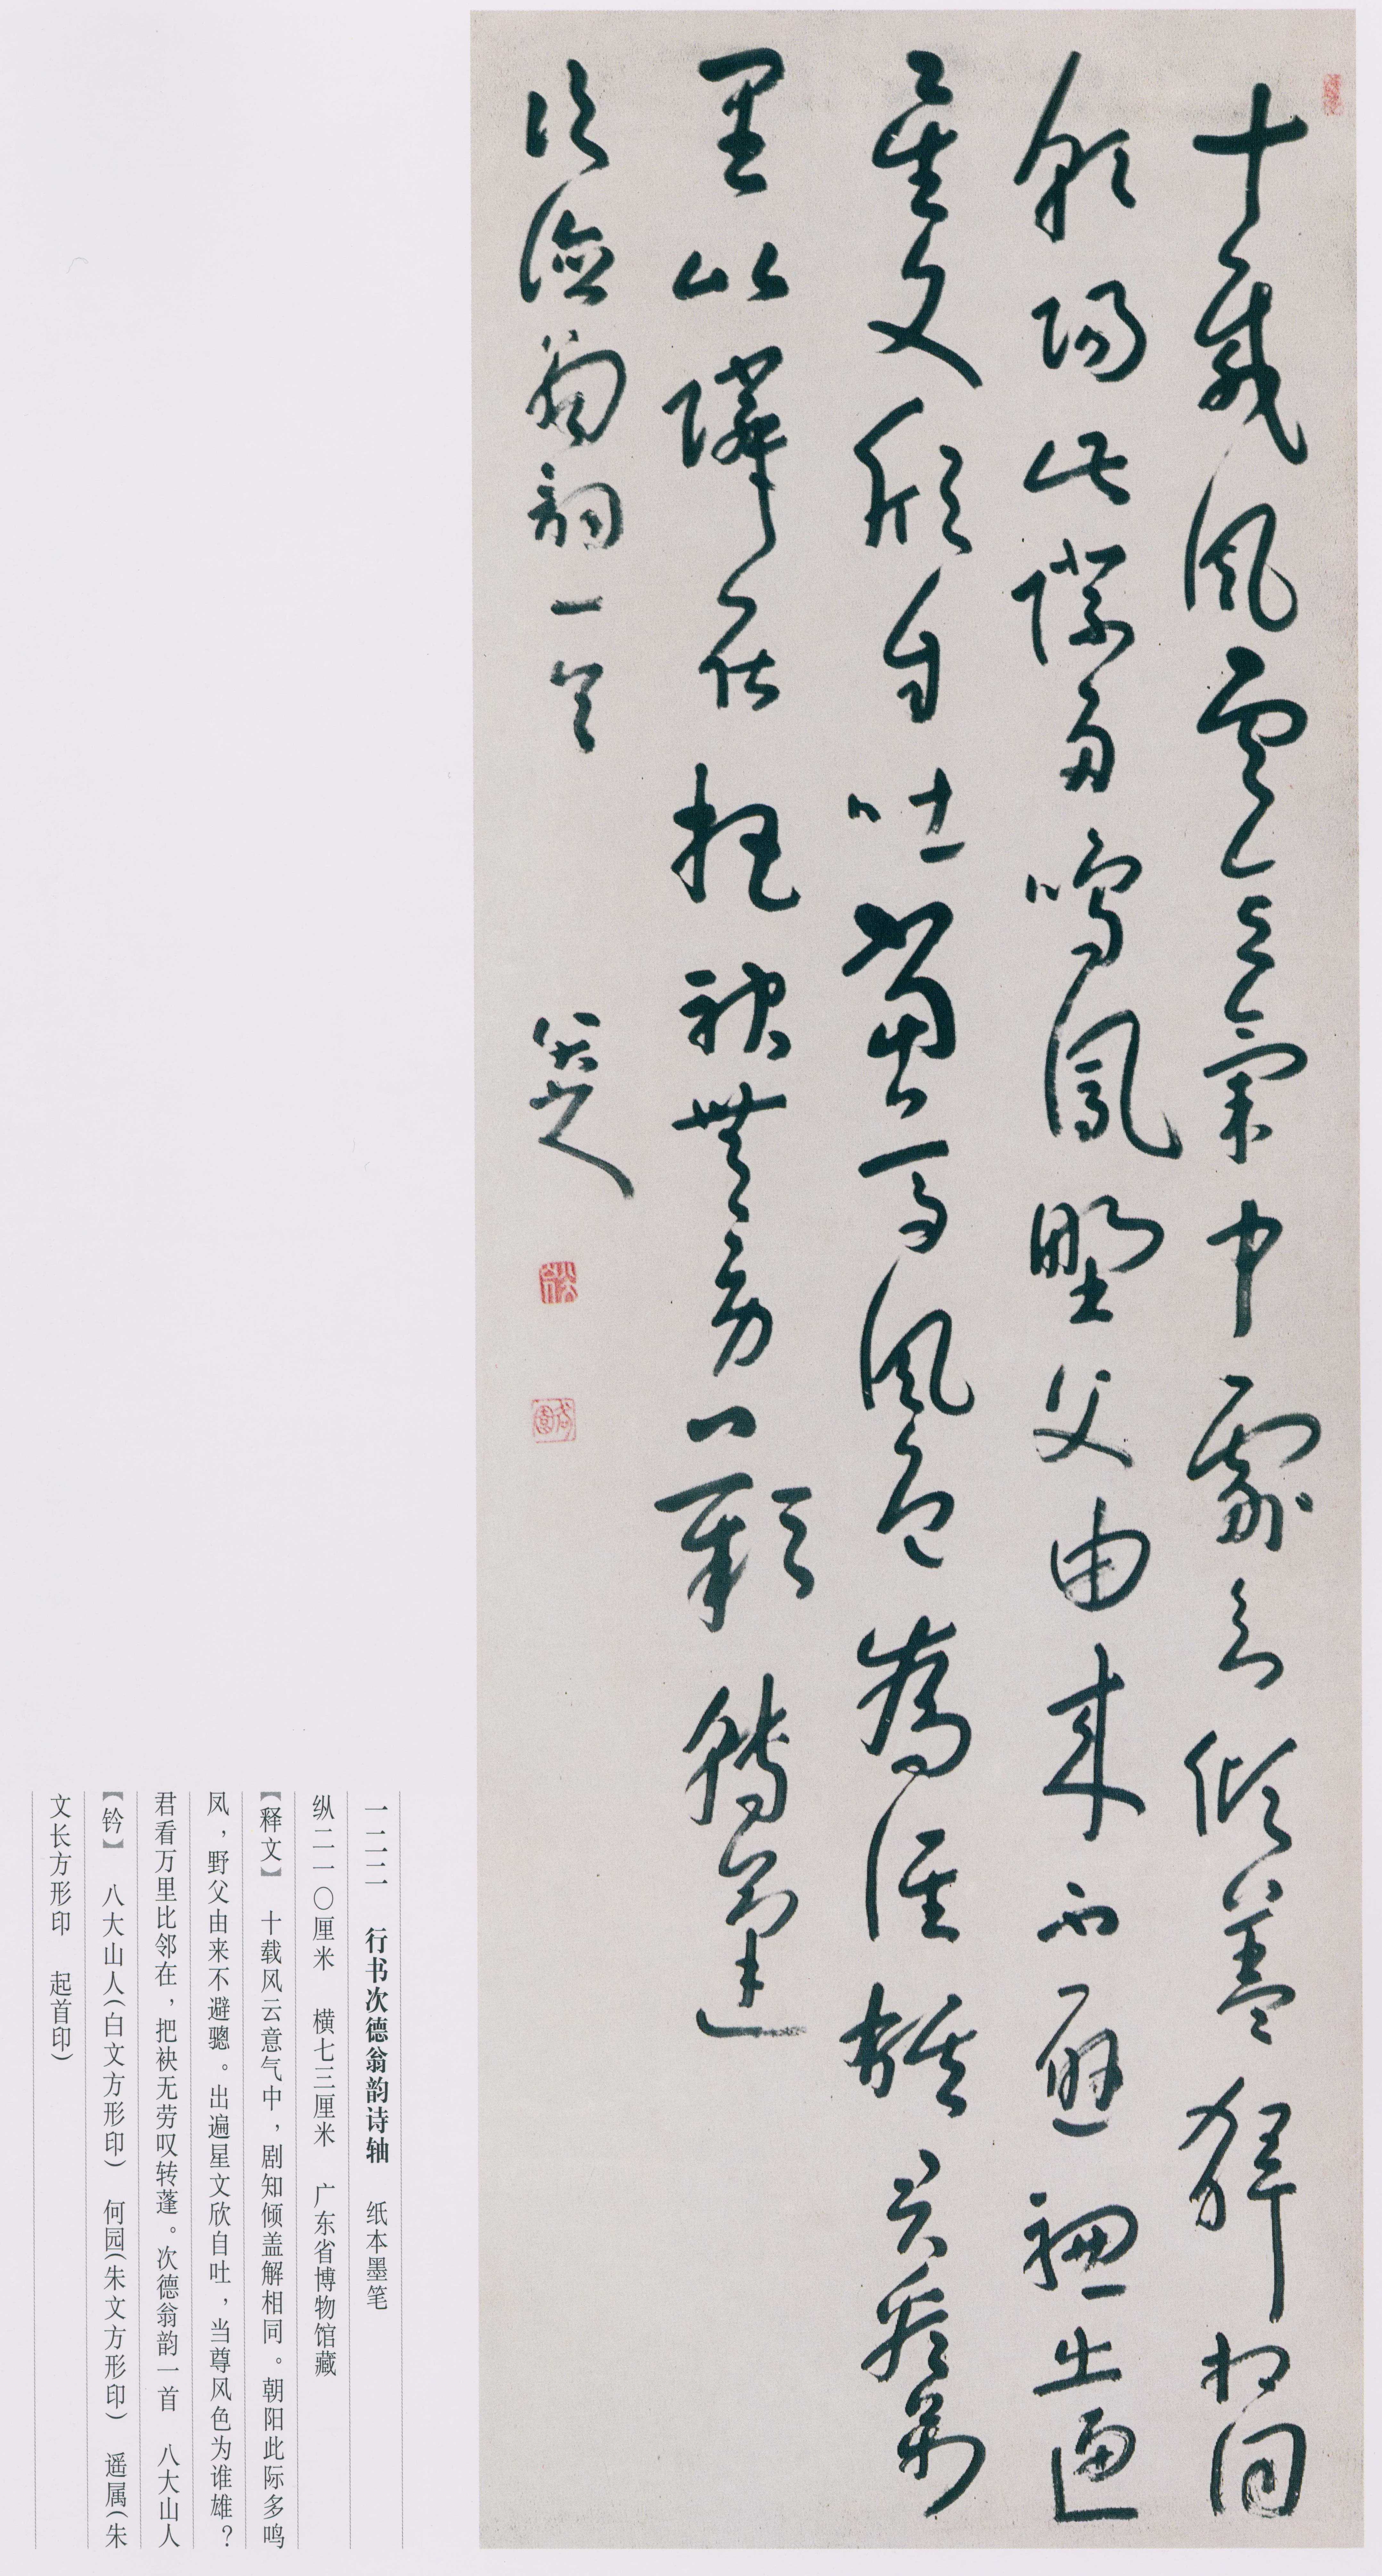 十載風雲意氣中劇知傾蓋解相同
朝陽此際多鳴鳳野父由來不避驄出遍
星文欣自吐當尊風色為誰雄君看萬
里比鄰在把袂無勞歎轉蓬
次德翁韻一首 八大山人
一二二 行书次德翁韵诗轴 纸本墨笔
纵二一〇厘米 横七三厘米 广东省博物馆藏
【释文】 十载风云意气中，剧知倾盖解相同。朝阳此际多鸣
凤，野父由来不避骢。出遍星文欣自吐，当尊风色为谁雄？
君看万里比邻在，把袂无劳叹转蓬。次德翁韵一首 八大山人
【钤】 八大山人(白文方形印) 何园(朱文方形印) 遥属(朱
文长方形印 起首印)